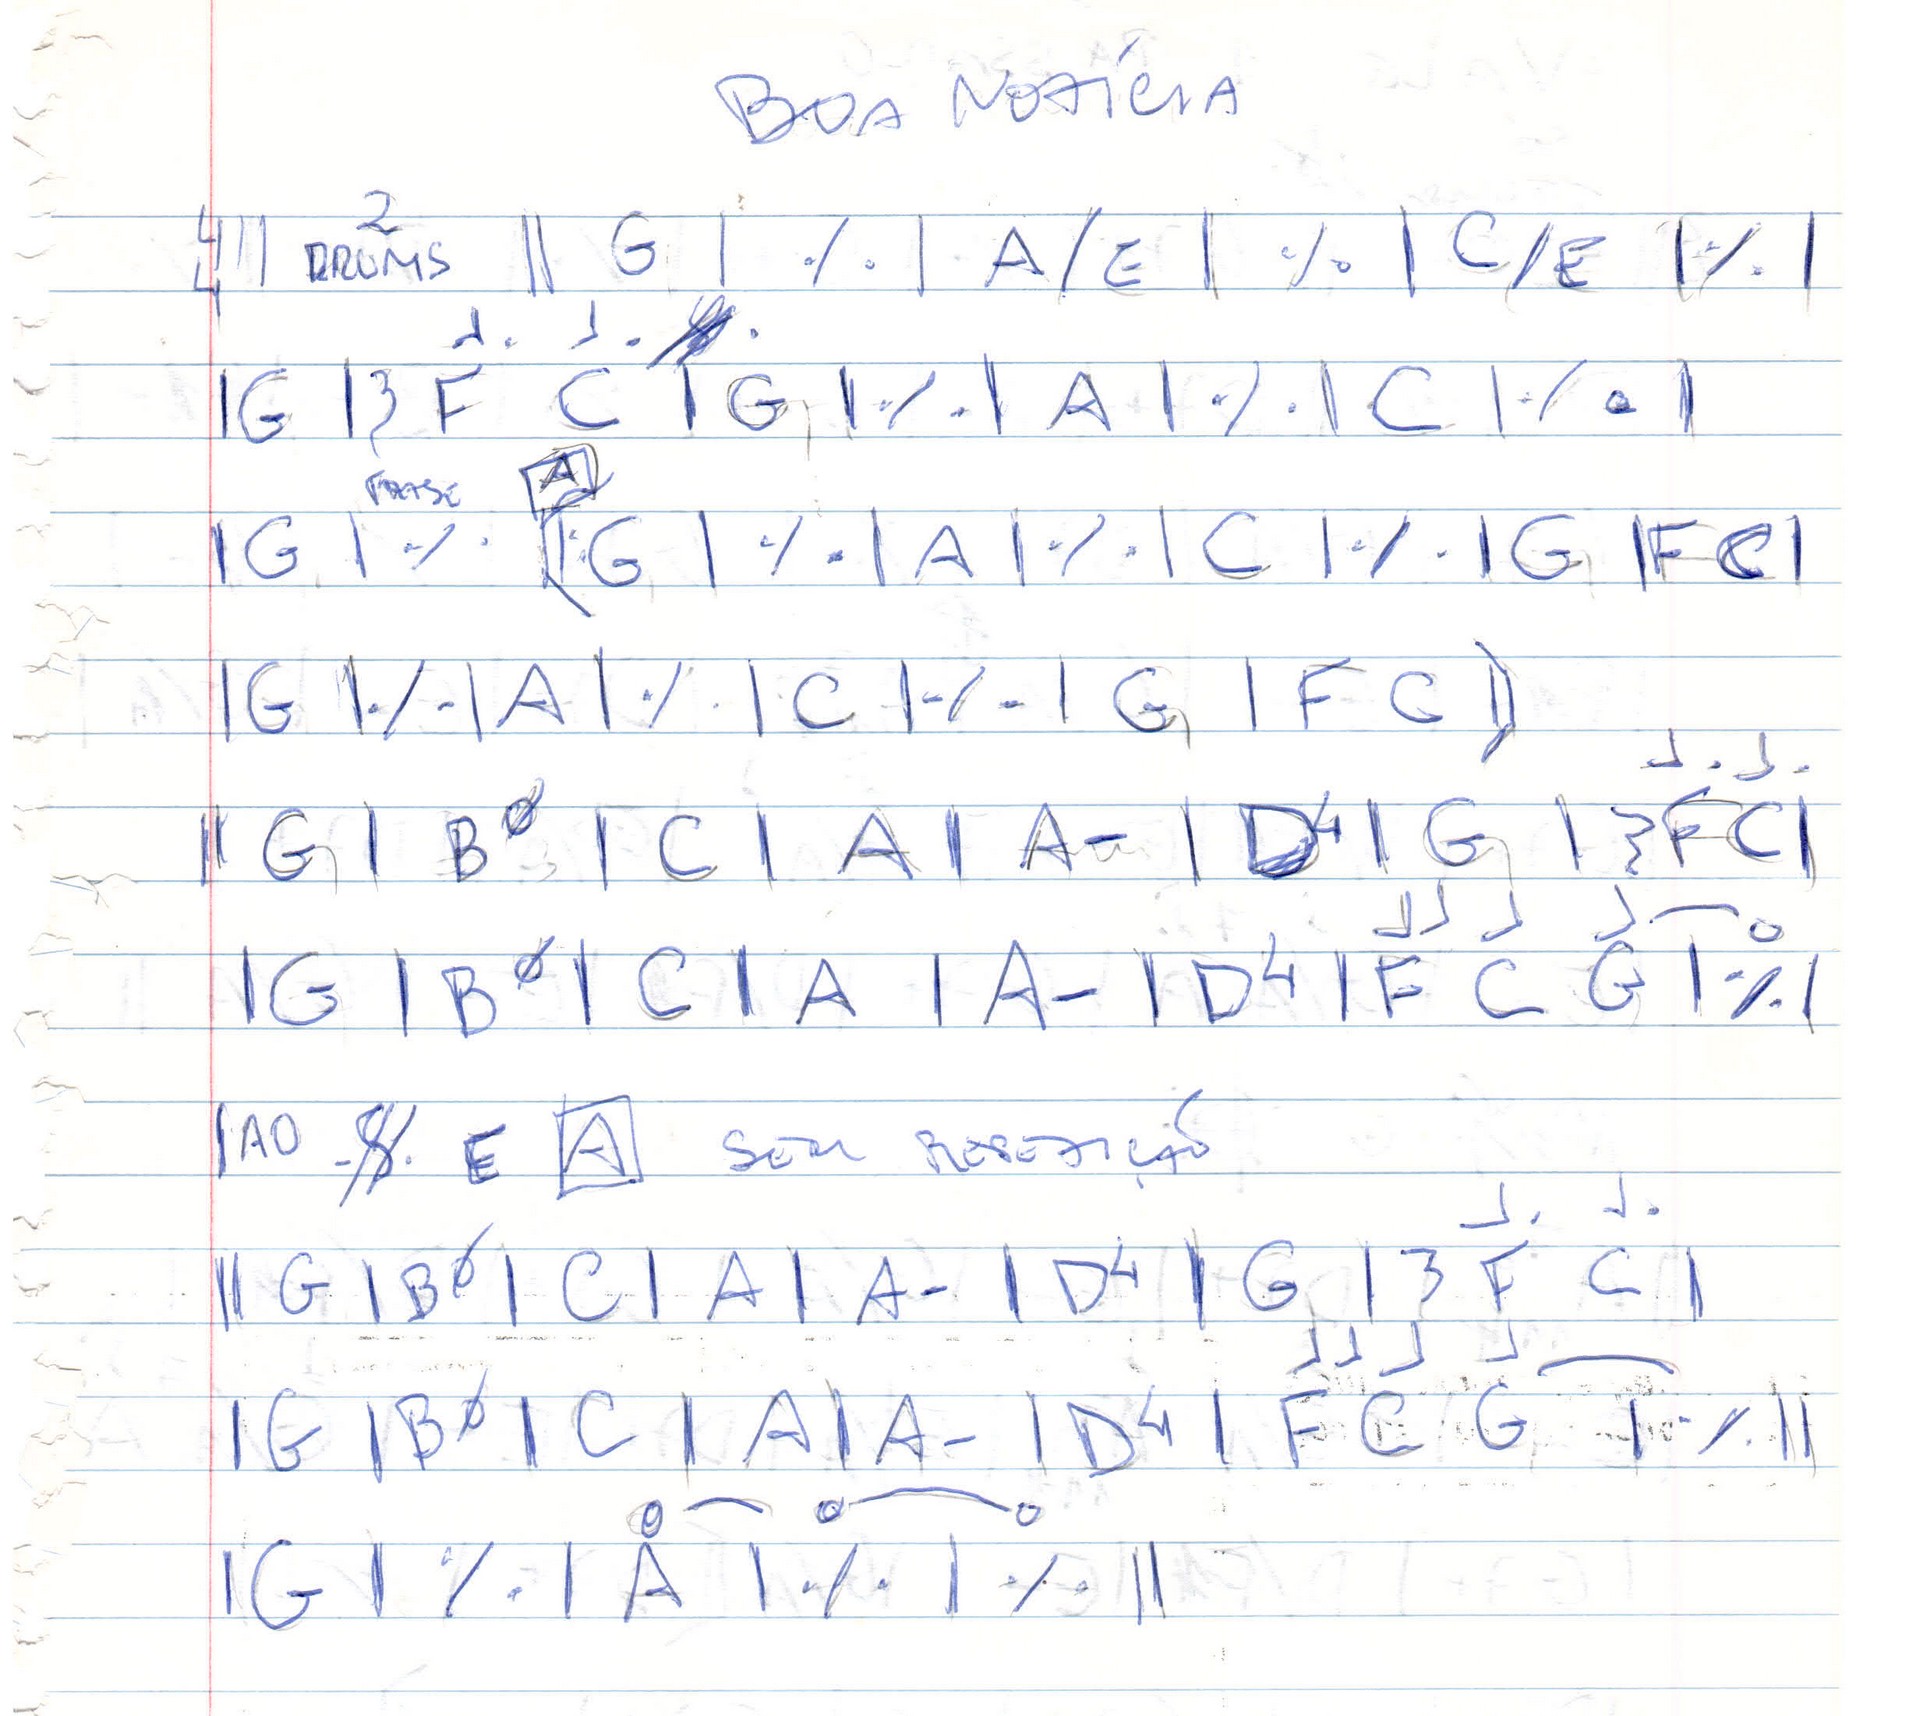 BOA NOTÍCIA
2
4/4 || DRUMS || G | ٪ | A/E | ٪ | C/E | ٪ |
♩. ♩. 𝄋
| G | 𝄽 F C | G | ٪ | A | ٪ | C | ٪ |
FRASE A
| G | ٪ ||: G | ٪ | A | ٪ | C | ٪ | G | F C |
| G | ٪ | A | ٪ | C | ٪ | G | F C :||
♩. ♩.
|| G | BØ | C | A | A- | D4 | G | 𝄽 F C |
♩ ♩ ♩ ♩ ⁀ o
| G | BØ | C | A | A- | D4 | F C G | ٪ |
| AO 𝄋 E A SEM REPETIÇÃO
♩. ♩.
|| G | BØ | C | A | A- | D4 | G | 𝄽 F C |
♩ ♩ ♩ ♩ ⁀
| G | BØ | C | A | A- | D4 | F C G | ٪ ||
o ⁀ o ⁀ o
| G | ٪ | A | ٪ | ٪ ||